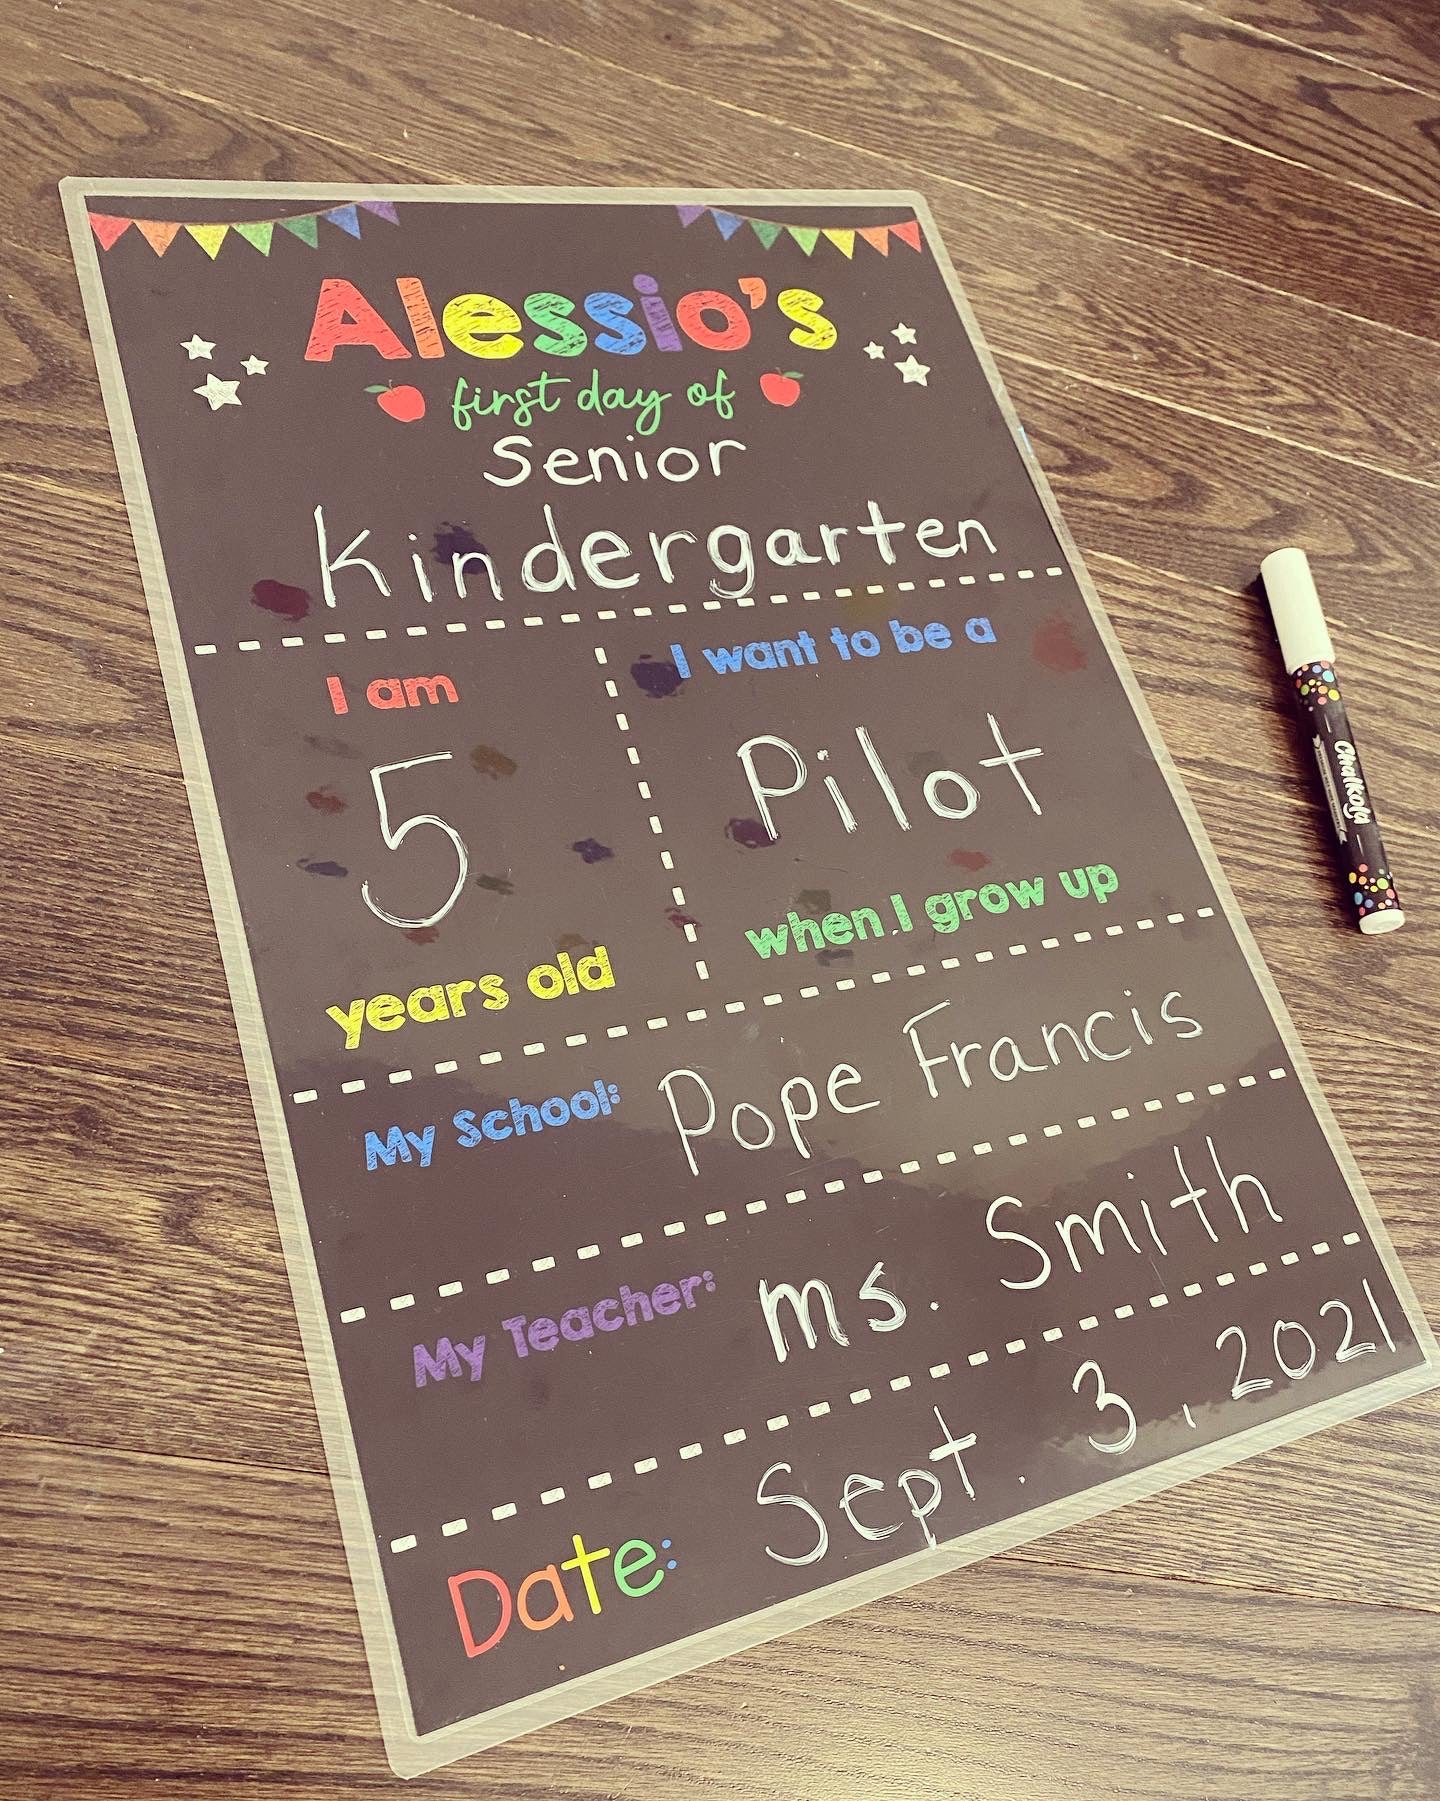 Alessio's
first day of
Senior
Kindergarten
I am
5
years old
I want to be a
Pilot
when I grow up
My School: Pope Francis
My Teacher: Ms. Smith
Date: Sept. 3, 2021
Chalkola